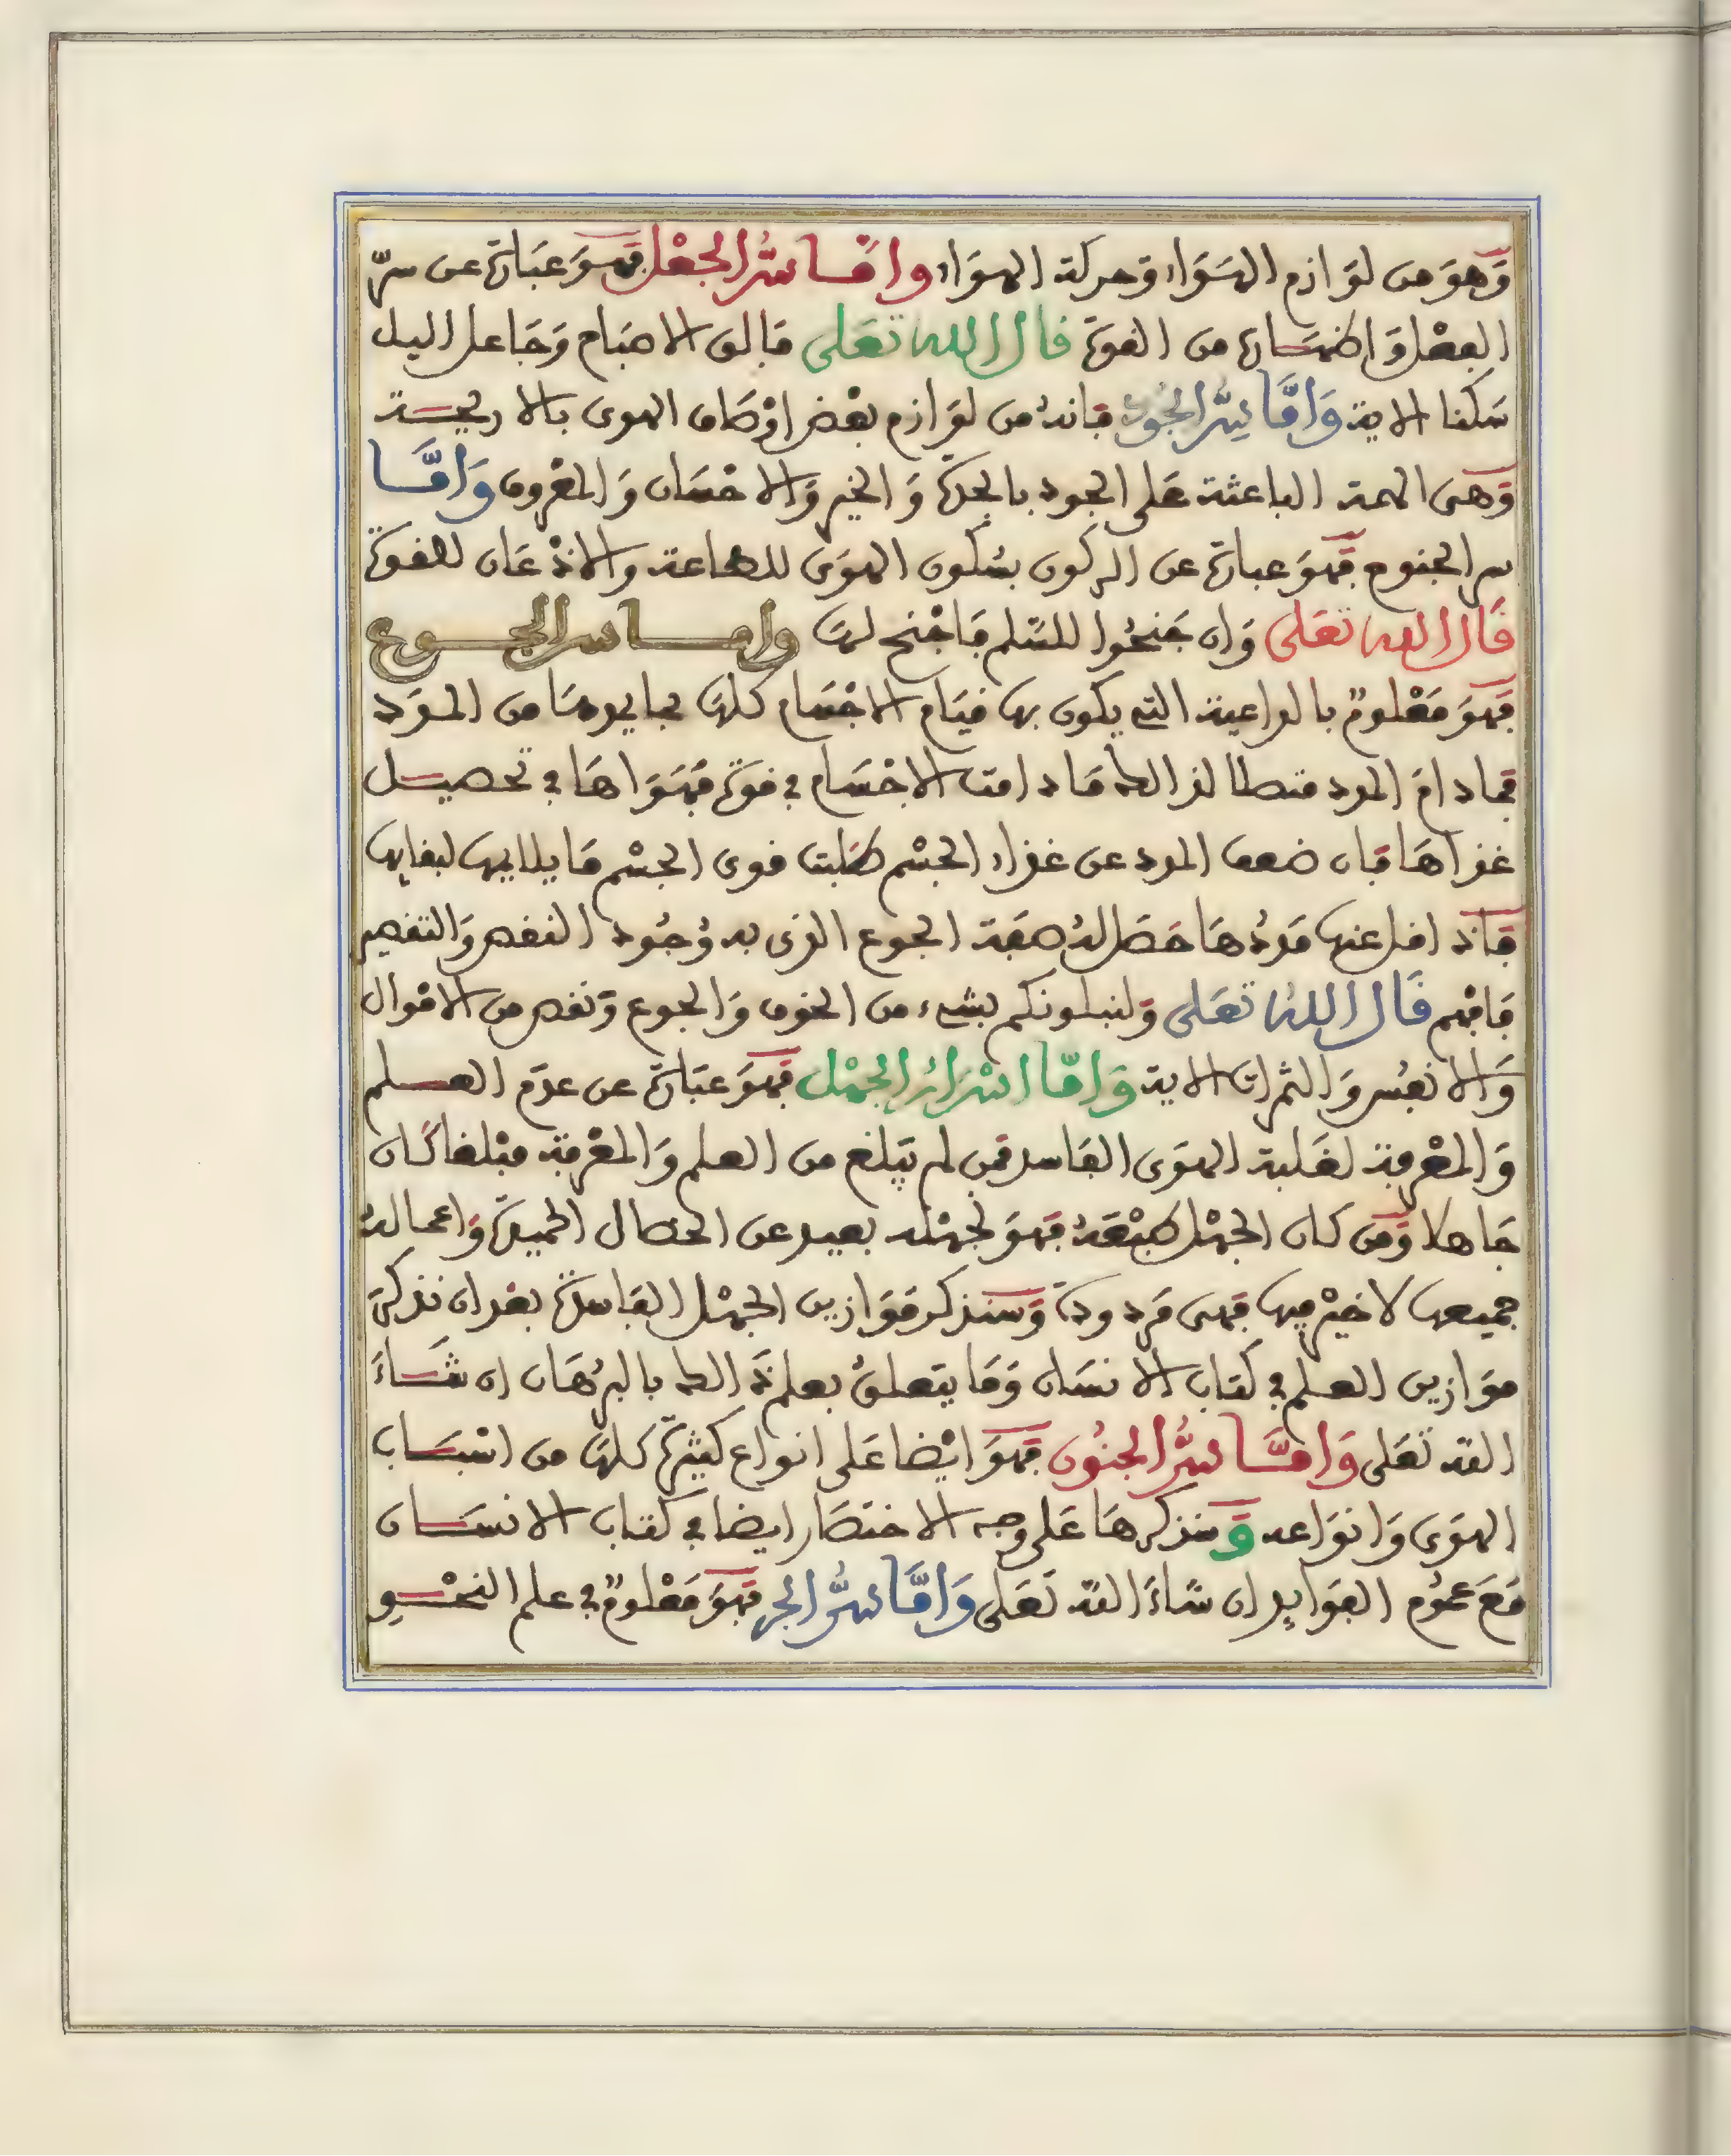 وَهوَ من لوَازم الهَوَاء وَحركة الهوَاء وامّا سرُّ الجعْل فهوَ عبَارة عن سرّ
الفعْل وَاظهَاره من القوة قال الله تعَلى فالق الاصبَاح وَجَاعل اليل
سَكنا الاية وَامَّا سِرُّ الجُود فانهُ من لوَازم بعْض اوْصَاف الهوى بالاريحية
وَهى الهمة الباعثة عَلى الجود بالجدة وَالخير وَالاحْسَان وَالمعْروف وَامَّا
سر الجنوح فهوَ عبارة عن الركون بسُكون الهوَى للطاعة والاذْعَان للقوة
قَال الله تعَلى وَان جَنحُوا للسّلم فَاجْنح لهَا وامّا سر الجوع
فهوَ مَعْلومٌ بالداعية التى يكون بها قيَام الاجْسَام كلهَا بما يمدهَا من المدَد
فما دامَ المدد متصلا لذالك مَا دامت الاجْسَام في قوة فهوَاهَا في تحصيل
غذاهَا فان ضعف المدد عن غذاء الجسْم طلبت قوى الجسْم مَا يلايمها لبقايها
فاذا قل عنها مَددُهَا حَصَل لهُ صفة الجوع الذى به وُجُود النقص وَالتنقيص
فَافهم قَال اللهُ تعَلى وَلنبلونكم بشىء من الخوف وَالجوع وَنقص من الامْوال
وَالانفُس وَالثمرات الاية وَامّا اسْرارُ الجهْل فهوَ عبَارة عن عدَم العلم
وَالمعْرفة لغَلبة الهوَى الفَاسد فمن لم يَبلغ من العلم وَالمعْرفة مبْلغا كَان
جَاهلا وَمَن كان الجهْل صِفتهُ فهوَ لجهْله بعيد عن الخصال الحميدة وَاعمالهُ
جميعها لا خيْر فيها فهى مَردودة وَسنذكر موَازين الجهْل الفَاسدة بعْد ان نذكر
موَازين العلم في كتاب الانسَان وَمَا يتعلقُ بعلم ذَالك بالبرُهَان ان شَاءَ
الله تعَلى وَامَّا سرُّ الجنُون فهوَ ايْضا عَلى انواع كثيرة كلهَا من اسْبَاب
الهوَى وَانوَاعه وَسنذكرهَا عَلى وجه الاختصَار ايضا في كتاب الانسَان
مَعَ عمُوم الفوَايد ان شَاءَ الله تعَلى وَامَّا سرُّ الجر فهوَ مَعْلومٌ في علم النحْو